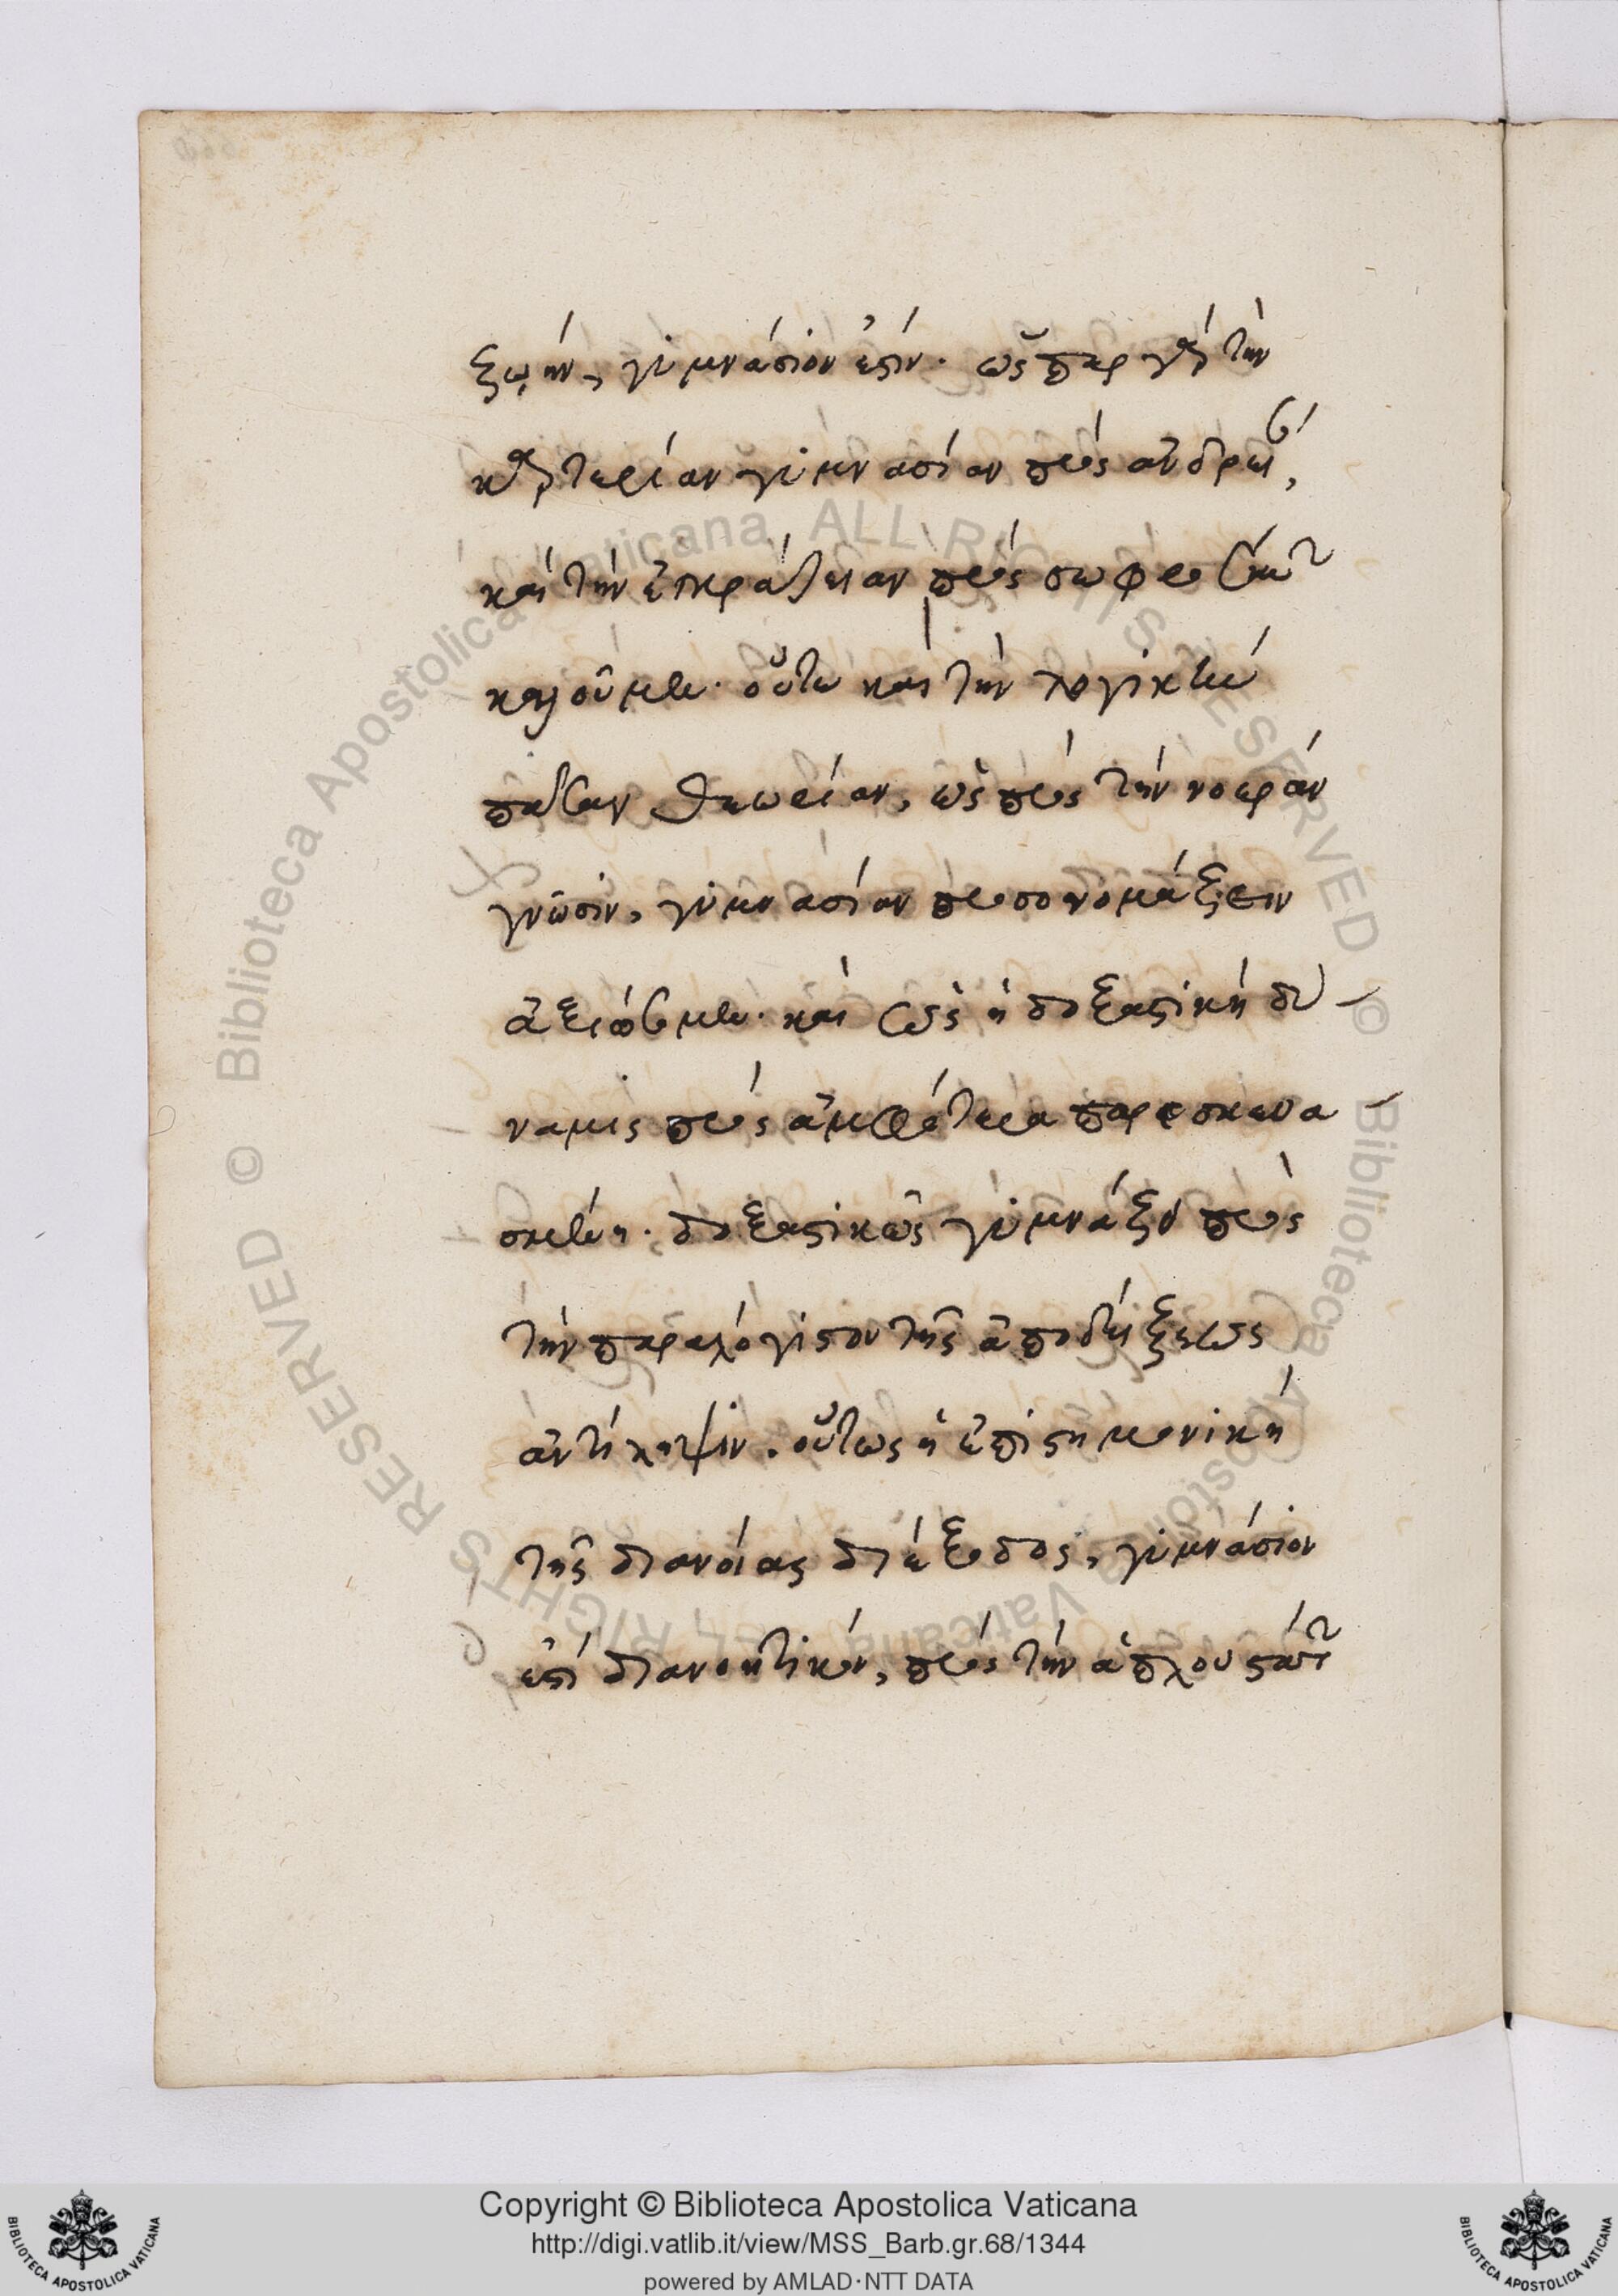 ζωήν, γυμνάσιόν ἐστιν. ὥσπερ γὰρ τὴν
καρτερίαν γυμνασίαν πρὸς ἀνδρείαν,
καὶ τὴν ἐγκράτειαν πρὸς σωφροσύνην
καλοῦμεν. οὕτω καὶ τὴν λογικὴν
πᾶσαν θεωρίαν, ὡς πρὸς τὴν νοερὰν
γνῶσιν, γυμνασίαν προσονομάζειν
ἀξιώσομεν. καὶ ὡς ἡ δοξαστικὴ δύ-
ναμις πρὸς ἀμφότερα παρεσκευα-
σμένη. δοξαστικῶς γυμνάζει πρὸς
τὴν παραλόγιστον τῆς ἀποδείξεως
ἀντίληψιν. οὕτως ἡ ἐπιστημονικὴ
τῆς διανοίας διέξοδος, γυμνάσιόν
ἐστι διανοητικόν, πρὸς τὴν ἁπλουστάτην
Copyright © Biblioteca Apostolica Vaticana
http://digi.vatlib.it/view/MSS_Barb.gr.68/1344
powered by AMLAD·NTT DATA